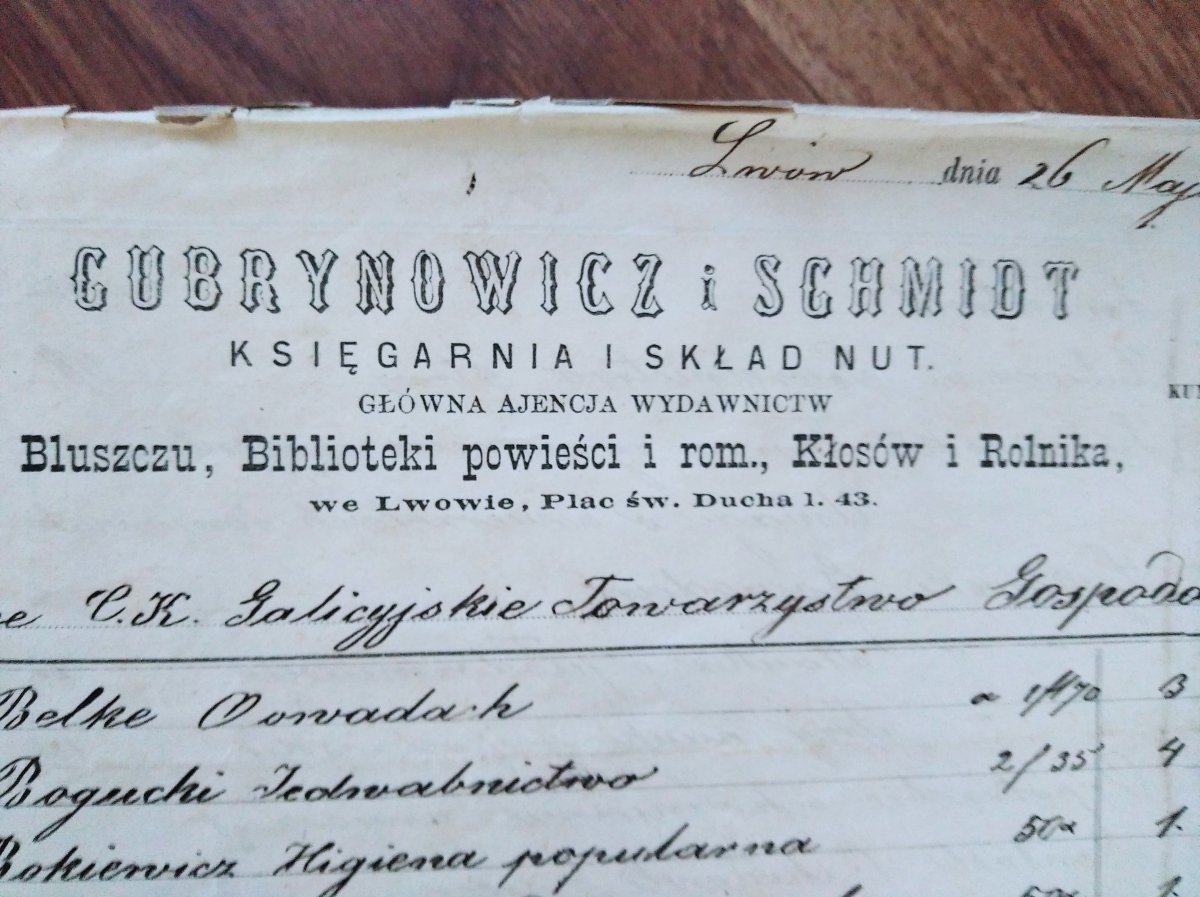 Lwów dnia 26 Maj
GUBRYNOWICZ i SCHMIDT
KSIĘGARNIA I SKŁAD NUT.
GŁÓWNA AJENCJA WYDAWNICTW
Bluszczu, Biblioteki powieści i rom., Kłosów i Rolnika,
we Lwowie, Plac św. Ducha l. 43.
C.K. Galicyjskie Towarzystwo Gospodo
Belke O owadach 3
Bogucki Jedwabnictwo 2/35 4
Higiena popularna 50x 1.